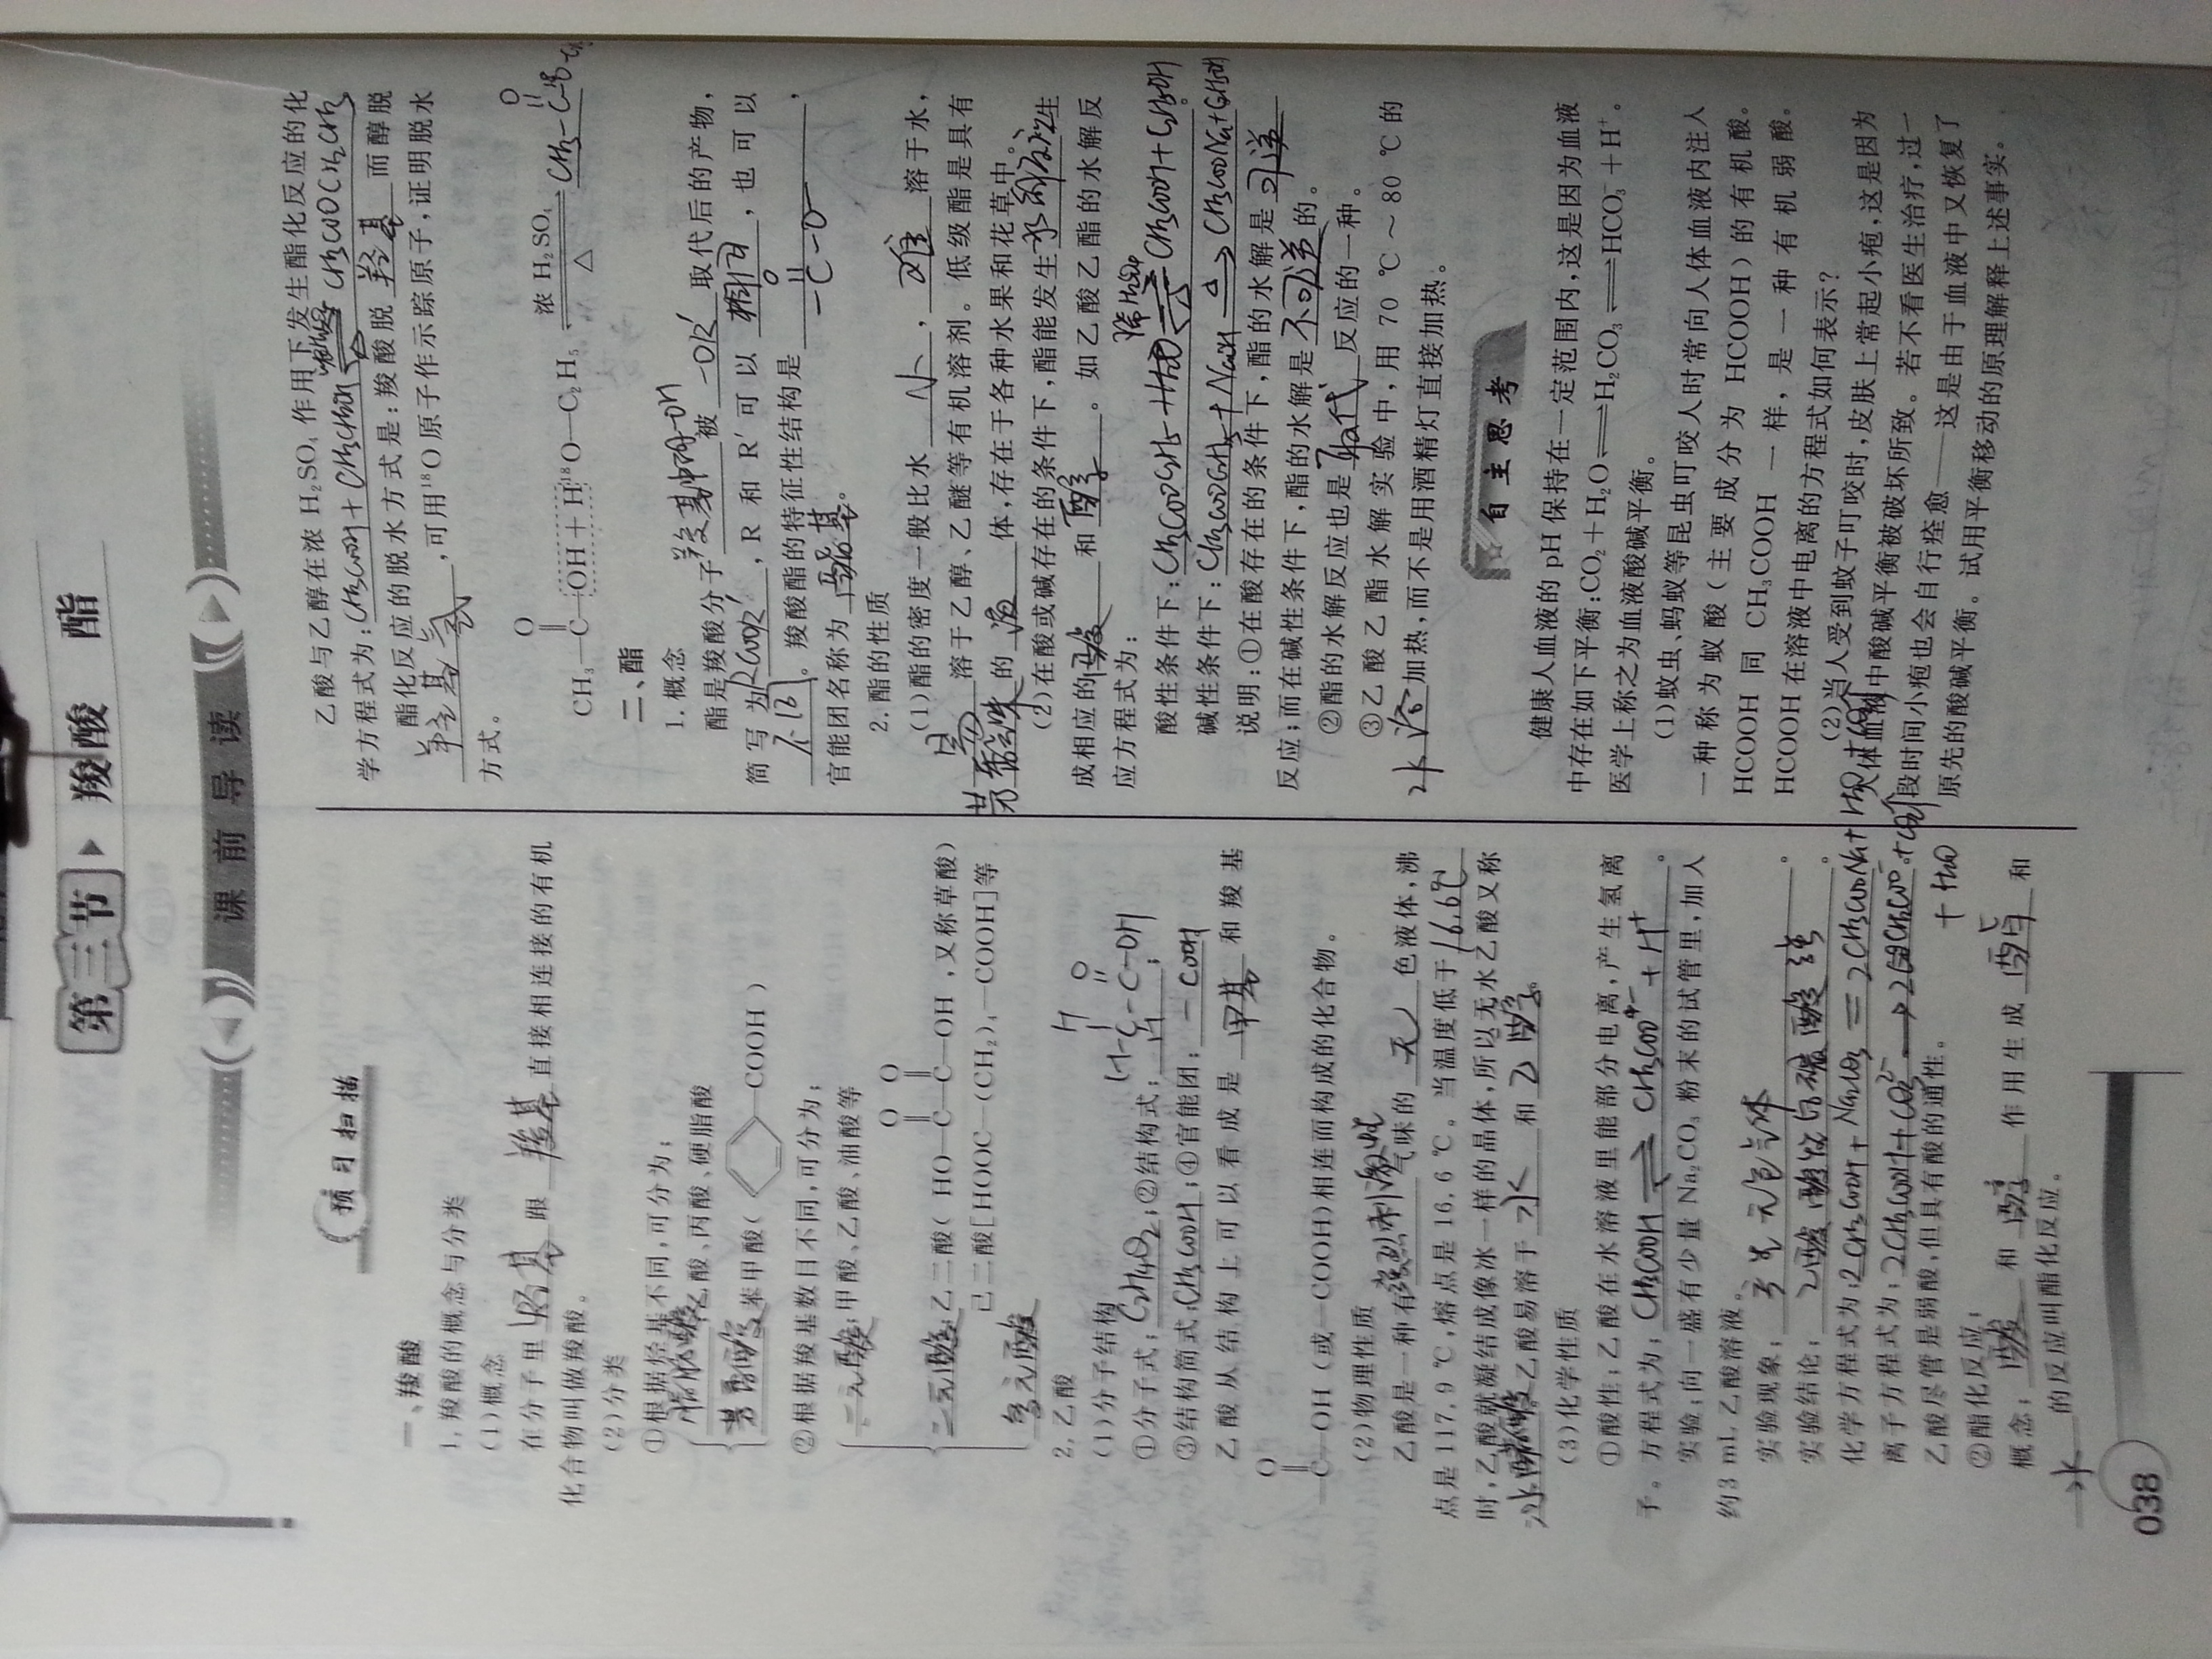 第三节 羧酸 酯
课前导读
预习扫描
一、羧酸
1. 羧酸的概念与分类
(1)概念
在分子里 烃基 跟 羧基 直接相连接的有机
化合物叫做羧酸。
(2)分类
①根据烃基不同,可分为:
脂肪酸 乙酸、丙酸、硬脂酸
芳香酸 苯甲酸( —COOH )
②根据羧基数目不同,可分为:
一元酸:甲酸、乙酸、油酸等
O O
二元酸:乙二酸( HO—C—C—OH ,又称草酸)
己二酸[HOOC—(CH₂)₄—COOH]等
多元酸
2. 乙酸
(1)分子结构
H O
H-C-C-OH
①分子式: C2H4O2 ;②结构式: H ;
③结构简式: CH3COOH ;④官能团: -COOH
乙酸从结构上可以看成是 甲基 和羧基
O
—C—OH (或—COOH)相连而构成的化合物。
(2)物理性质
乙酸是一种有 强烈刺激性 气味的 无 色液体,沸
点是 117.9 ℃,熔点是 16.6 ℃。当温度低于 16.6℃
时,乙酸就凝结成像冰一样的晶体,所以无水乙酸又称
冰醋酸 。乙酸易溶于 水 和 乙醇 。
(3)化学性质
①酸性:乙酸在水溶液里能部分电离,产生氢离
子。方程式为: CH3COOH ⇌ CH3COO⁻ + H⁺ 。
实验:向一盛有少量 Na₂CO₃ 粉末的试管里,加入
约3 mL 乙酸溶液。
实验现象: 产生无色气体 。
实验结论: 乙酸酸性比碳酸强 。
化学方程式为: 2CH3COOH + Na2CO3 = 2CH3COONa + H2O + CO2↑
离子方程式为: 2CH3COOH + CO3²⁻ → 2CH3COO⁻ + CO2↑
+ H2O
乙酸尽管是弱酸,但具有酸的通性。
②酯化反应:
概念: 酸 和 醇 作用生成 酯 和
水 的反应叫酯化反应。
038
乙酸与乙醇在浓 H₂SO₄ 作用下发生酯化反应的化
学方程式为: CH3COOH + CH3CH2OH ⇌ 浓H2SO4 △ CH3COOCH2CH3
酯化反应的脱水方式是:羧酸脱 羟基 而醇脱
羟基氢 ,可用¹⁸O 原子作示踪原子,证明脱水
方式。
O O
CH₃—C—OH + H¹⁸O—C₂H₅ ⇌ 浓 H₂SO₄ △ CH3-C-¹⁸O-
二、酯
1. 概念
酯是羧酸分子 羧基中的-OH 被 -OR′ 取代后的产物,
简写为 RCOOR′ , R 和 R′ 可以 相同 ,也可以
不同 。羧酸酯的特征性结构是 -C-O- ,
O
官能团名称为 酯基 。
2. 酯的性质
(1)酯的密度一般比水 小 , 难 溶于水,
易 溶于乙醇、乙醚等有机溶剂。低级酯是具有
芳香气味 的 液 体,存在于各种水果和花草中。
(2)在酸或碱存在的条件下,酯能发生 水解反应 生
成相应的 酸 和 醇 。如乙酸乙酯的水解反
应方程式为:
酸性条件下: CH3COOC2H5 + H2O ⇌ 稀H2SO4 △ CH3COOH + C2H5OH 。
碱性条件下: CH3COOC2H5 + NaOH △→ CH3COONa + C2H5OH
说明:①在酸存在的条件下,酯的水解是 可逆
反应;而在碱性条件下,酯的水解是 不可逆 的。
②酯的水解反应也是 取代 反应的一种。
③乙酸乙酯水解实验中,用 70 ℃～80 ℃的
水浴 加热,而不是用酒精灯直接加热。
自主思考
健康人血液的 pH 保持在一定范围内,这是因为血液
中存在如下平衡:CO₂+H₂O⇌H₂CO₃⇌HCO₃⁻+H⁺。
医学上称之为血液酸碱平衡。
(1)蚊虫、蚂蚁等昆虫叮咬人时常向人体血液内注入
一种称为蚁酸(主要成分为 HCOOH)的有机酸。
HCOOH 同 CH₃COOH 一样,是一种有机弱酸。
HCOOH 在溶液中电离的方程式如何表示?
(2)当人受到蚊子叮咬时,皮肤上常起小疱,这是因为
人体血液中酸碱平衡被破坏所致。若不看医生治疗,过一
段时间小疱也会自行痊愈——这是由于血液中又恢复了
原先的酸碱平衡。试用平衡移动的原理解释上述事实。